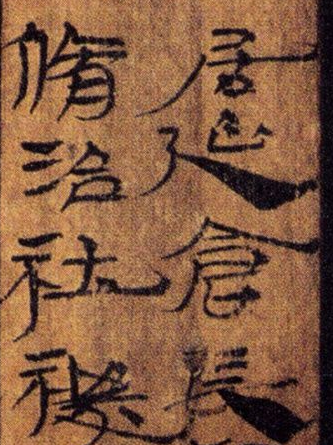 居延倉長
脩治社稷